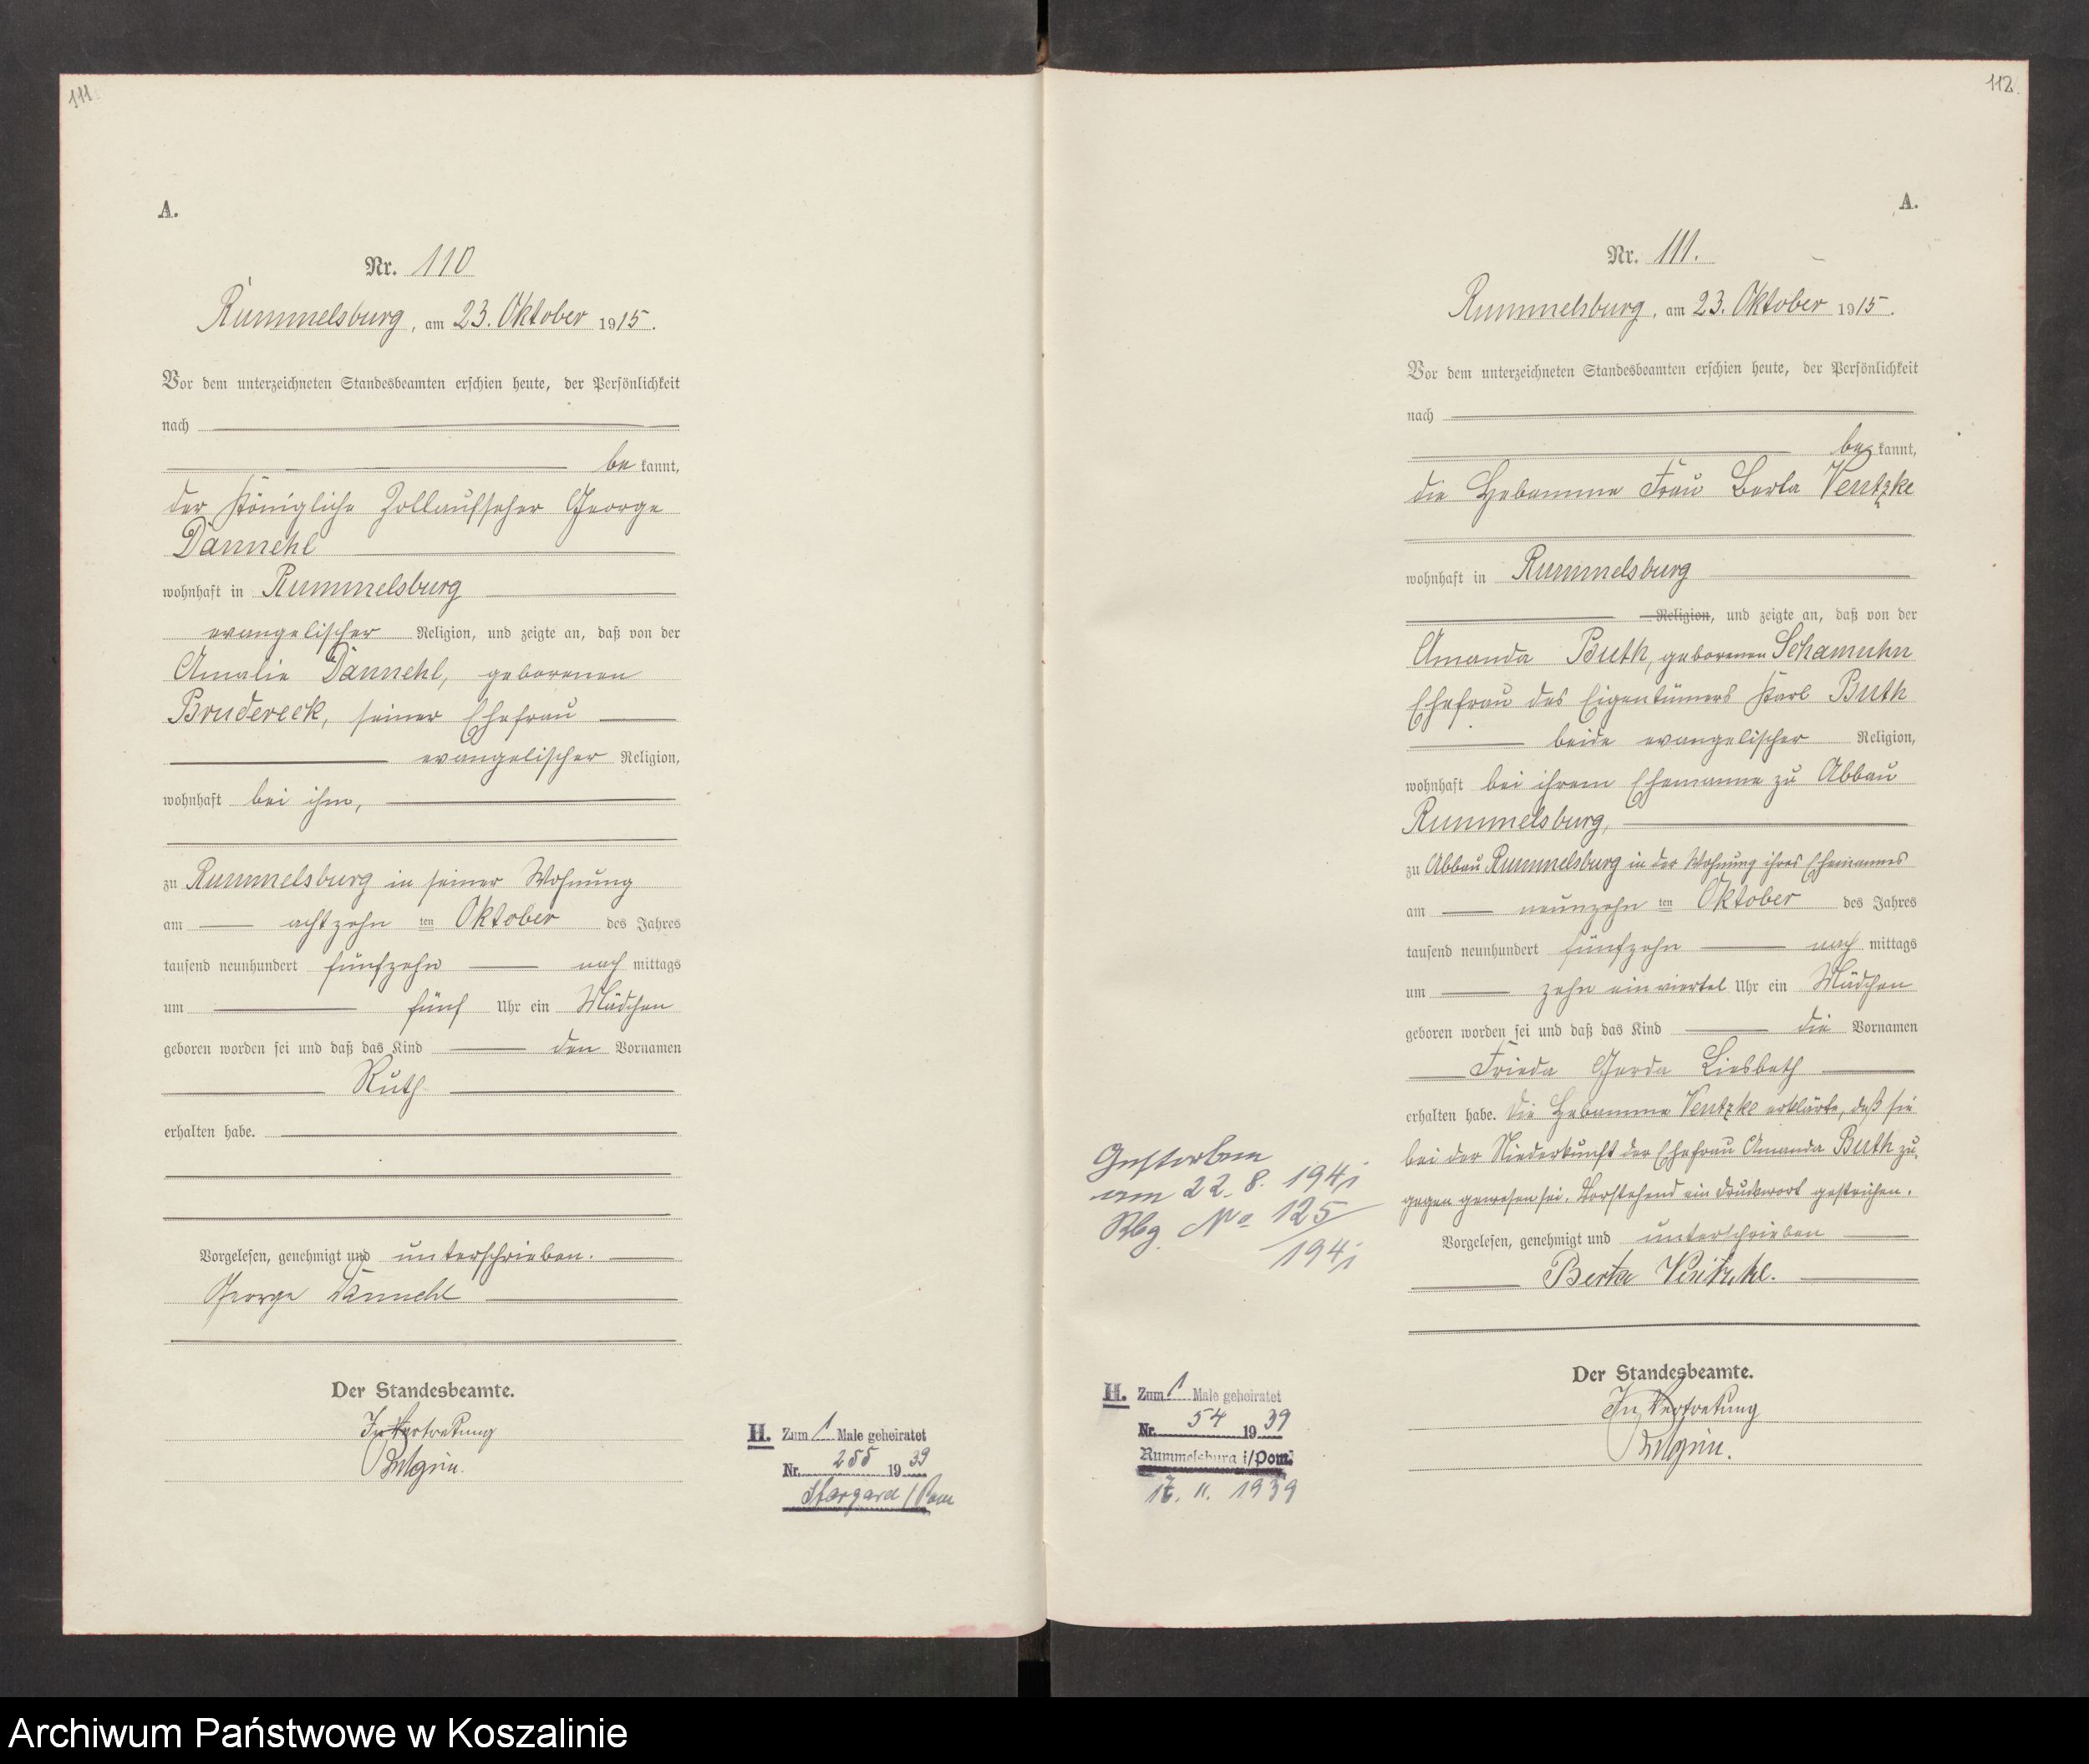 111
A.
Nr. 110
Rummelsburg, am 23. Oktober 1915.
Vor dem unterzeichneten Standesbeamten erschien heute, der Persönlichkeit
nach
be kannt,
der Königliche Zollaufseher George
Dannehl
wohnhaft in Rummelsburg
evangelischer Religion, und zeigte an, daß von der
Amalie Dannehl, geborenen
Brudereck, seiner Ehefrau
evangelischer Religion,
wohnhaft bei ihm,
zu Rummelsburg in seiner Wohnung
am achtzehn ten Oktober des Jahres
tausend neunhundert fünfzehn nach mittags
um fünf Uhr ein Mädchen
geboren worden sei und daß das Kind den Vornamen
Ruth
erhalten habe.
Vorgelesen, genehmigt und unterschrieben.
George Dannehl
Der Standesbeamte.
In Vertretung
H. Zum 1 Male geheiratet
Nr. 255 1939
Stargard / Pom
112
A.
Nr. 111.
Rummelsburg, am 23. Oktober 1915.
Vor dem unterzeichneten Standesbeamten erschien heute, der Persönlichkeit
nach
be kannt,
die Hebamme Frau Berta Ventzke
wohnhaft in Rummelsburg
Religion, und zeigte an, daß von der
Amanda Buth, geborenen Schamuhn
Ehefrau des Eigentümers Karl Buth
beide evangelischer Religion,
wohnhaft bei ihrem Ehemanne zu Abbau
Rummelsburg,
zu Abbau Rummelsburg in der Wohnung ihres Ehemannes
am neunzehn ten Oktober des Jahres
tausend neunhundert fünfzehn nach mittags
um zehn einviertel Uhr ein Mädchen
geboren worden sei und daß das Kind die Vornamen
Frieda Gerda Liesbeth
erhalten habe. Die Hebamme Ventzke erklärte, daß sie
bei der Niederkunft der Ehefrau Amanda Buth zu-
gegen gewesen sei. Vorstehend ein Druckwort gestrichen.
Vorgelesen, genehmigt und unterschrieben
Berta Ventzke.
Der Standesbeamte.
In Vertretung
Gestorben
am 22. 8. 1941
Rbg. No 125/
1941
H. Zum 1 Male geheiratet
Nr. 54 1939
Rummelsburg i/Pom.
11. 1939
Archiwum Państwowe w Koszalinie